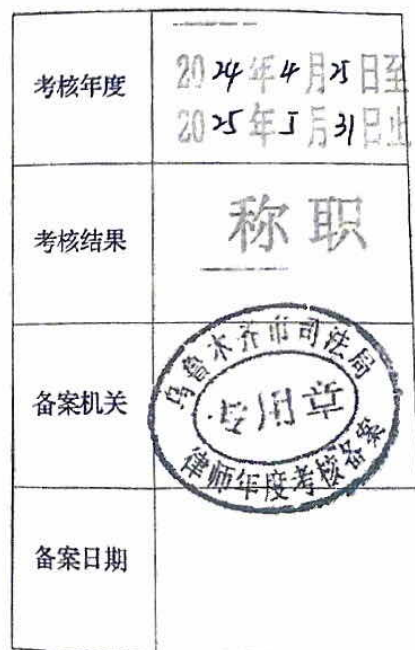 考核年度
2024年4月25日至
2025年5月31日止
考核结果
称职
备案机关
乌鲁木齐市司法局
专用章
律师年度考核备案
备案日期